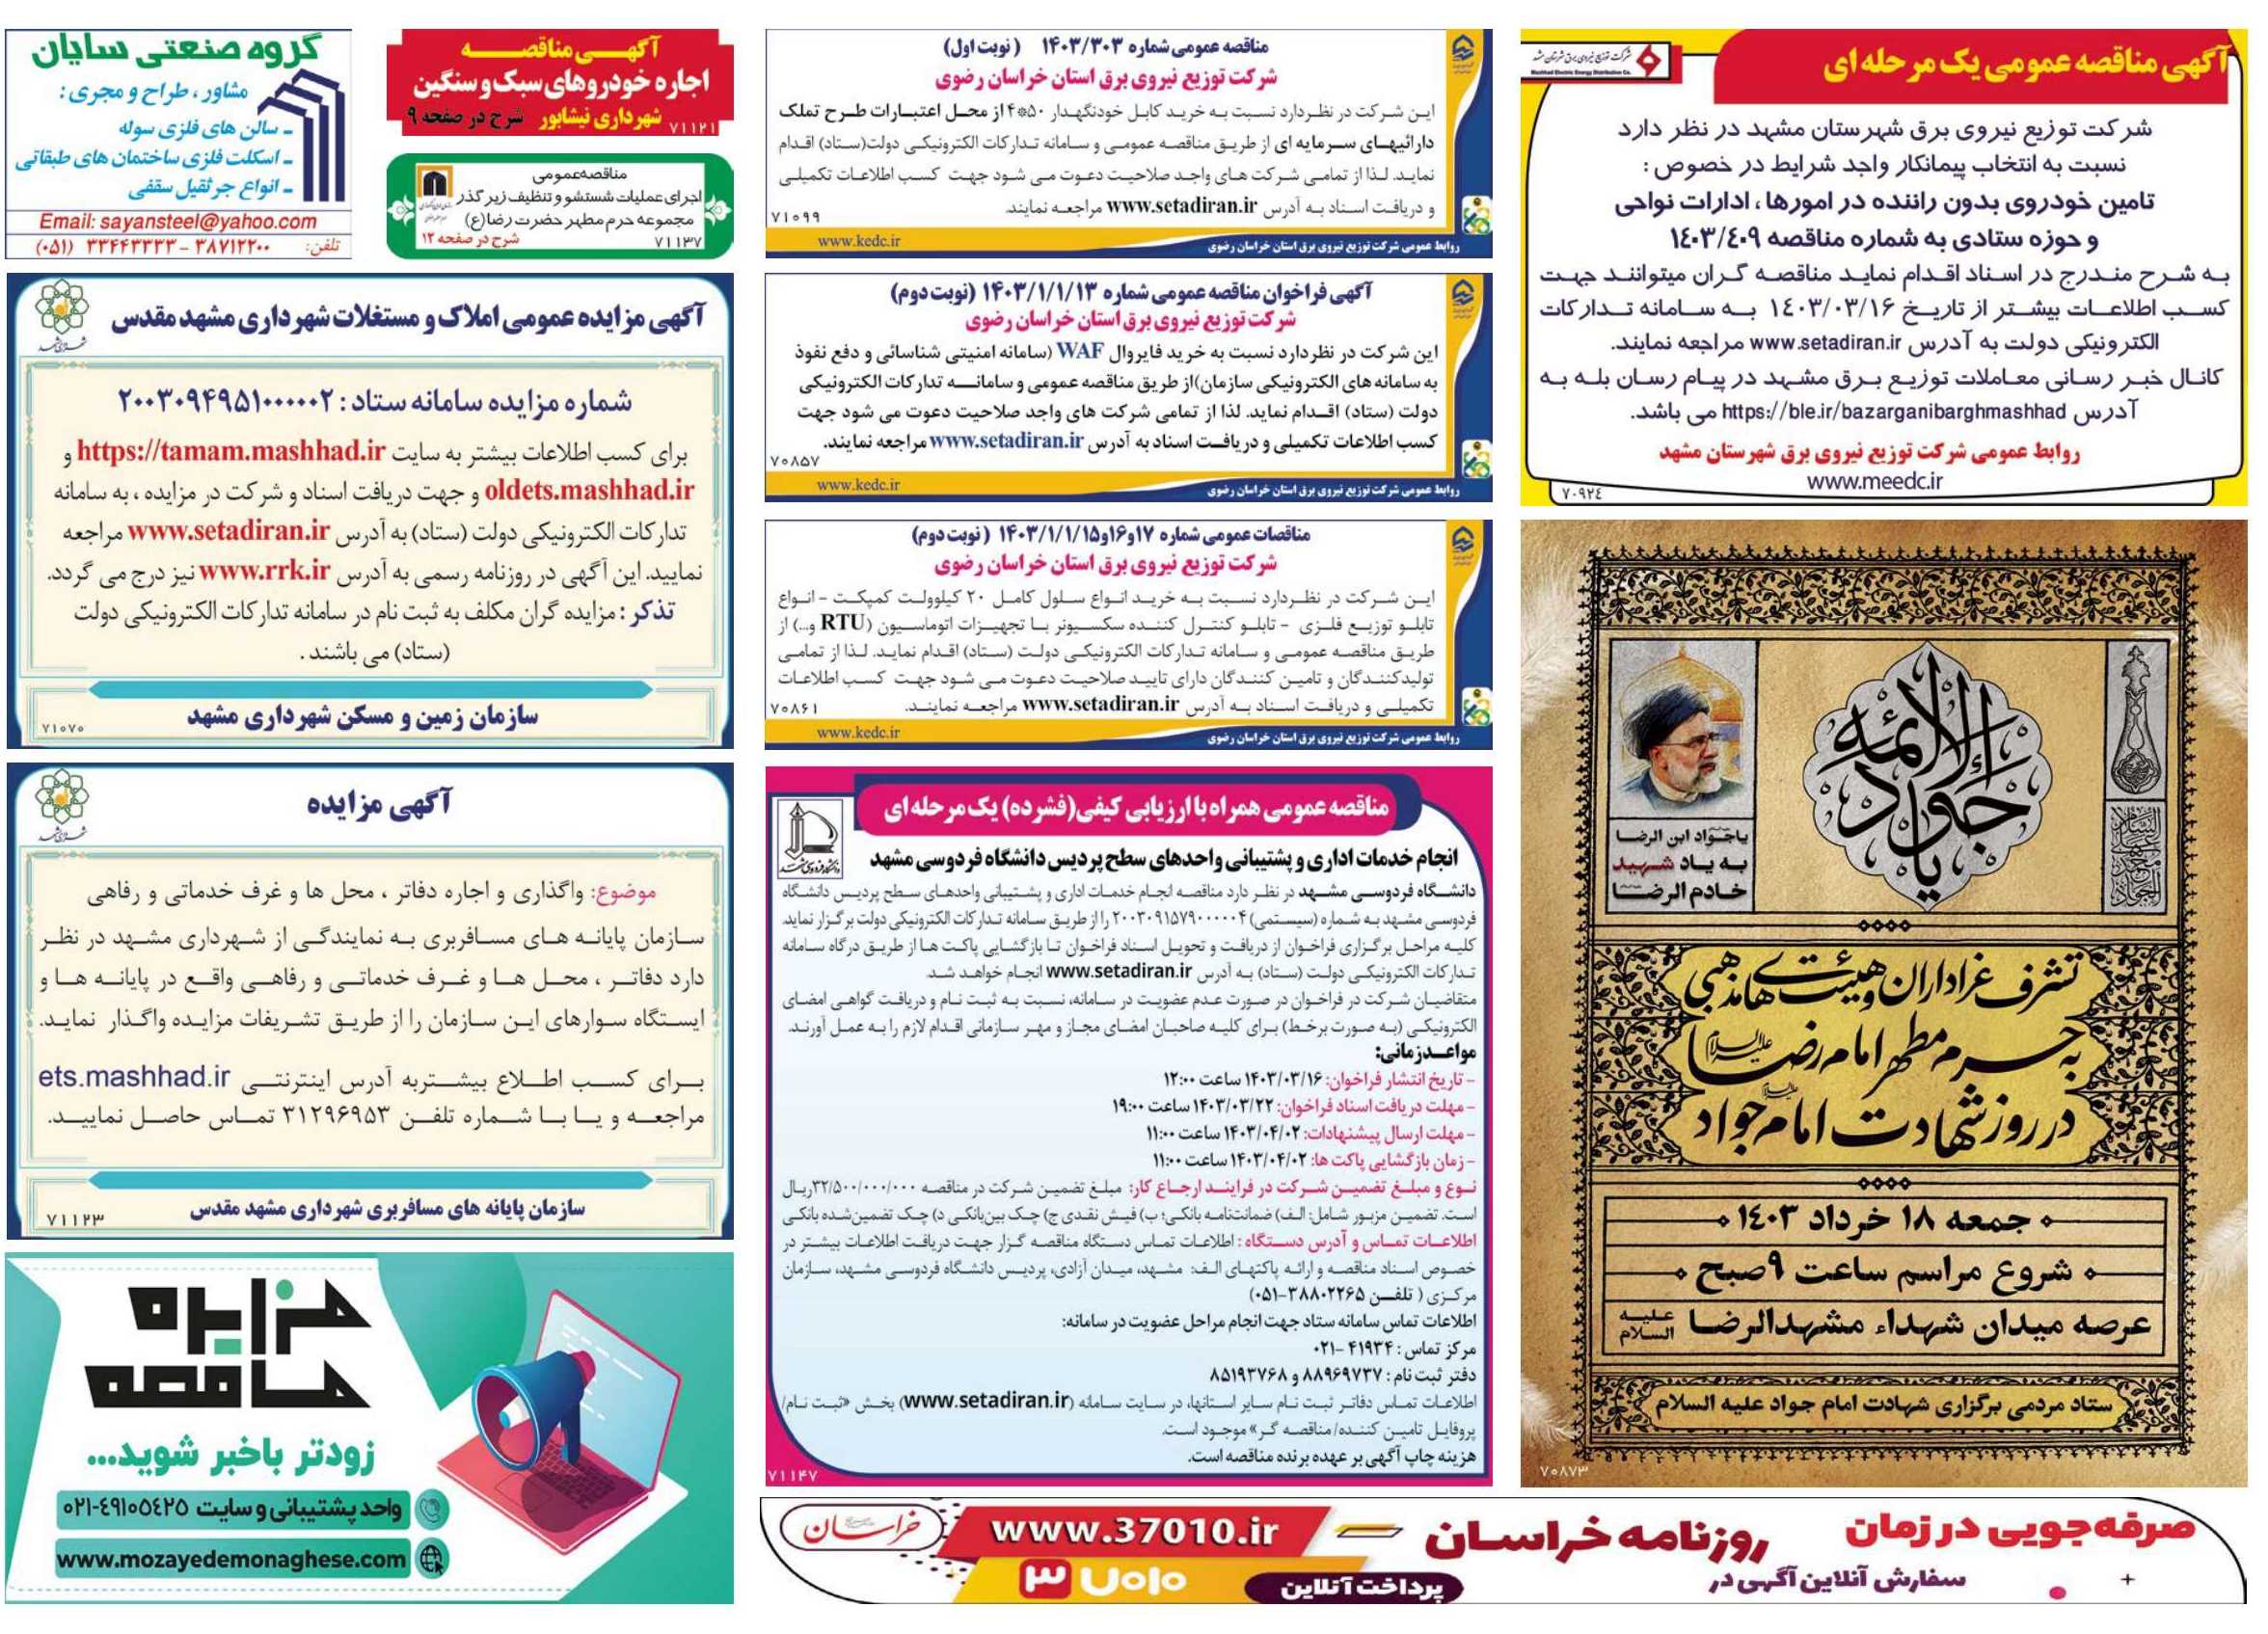 آگهی مناقصه عمومی یک مرحله ای
شرکت توزیع نیروی برق شهرستان مشهد
Mashhad Electric Energy Distribution Co.
شرکت توزیع نیروی برق شهرستان مشهد در نظر دارد
نسبت به انتخاب پیمانکار واجد شرایط در خصوص :
تامین خودروی بدون راننده در امورها ، ادارات نواحی
و حوزه ستادی به شماره مناقصه ۱۴۰۳/۴۰۹
به شرح مندرج در اسناد اقدام نماید مناقصه گران میتوانند جهت
کسب اطلاعات بیشتر از تاریخ ۱۴۰۳/۰۳/۱۶ به سامانه تدارکات
الکترونیکی دولت به آدرس www.setadiran.ir مراجعه نمایند.
کانال خبر رسانی معاملات توزیع برق مشهد در پیام رسان بله به
آدرس https://ble.ir/bazarganibarghmashhad می باشد.
روابط عمومی شرکت توزیع نیروی برق شهرستان مشهد
www.meedc.ir
۷۰۹۲۴
یا جواد الائمه
یاجَوّاد ابن الرضا
به یاد شهید
خادم الرضا
تشرف عزاداران و هیئت های مذهبی
به حرم مطهر امام رضا علیه السلام
در روز شهادت امام جواد علیه السلام
جمعه ۱۸ خرداد ۱۴۰۳
شروع مراسم ساعت ۹ صبح
عرصه میدان شهداء مشهدالرضا علیه السلام
ستاد مردمی برگزاری شهادت امام جواد علیه السلام
۷۰۸۷۳
مناقصه عمومی شماره ۱۴۰۳/۳۰۳ (نوبت اول)
شرکت توزیع نیروی برق استان خراسان رضوی
این شرکت در نظردارد نسبت به خرید کابل خودنگهدار ۵۰*۴ از محل اعتبارات طرح تملک
دارائیهای سرمایه ای از طریق مناقصه عمومی و سامانه تدارکات الکترونیکی دولت(ستاد) اقدام
نماید. لذا از تمامی شرکت های واجد صلاحیت دعوت می شود جهت کسب اطلاعات تکمیلی
و دریافت اسناد به آدرس www.setadiran.ir مراجعه نمایند.
۷۱۰۹۹
www.kedc.ir
روابط عمومی شرکت توزیع نیروی برق استان خراسان رضوی
آگهی فراخوان مناقصه عمومی شماره ۱۴۰۳/۱/۱/۱۳ (نوبت دوم)
شرکت توزیع نیروی برق استان خراسان رضوی
این شرکت در نظردارد نسبت به خرید فایروال WAF (سامانه امنیتی شناسائی و دفع نفوذ
به سامانه های الکترونیکی سازمان)از طریق مناقصه عمومی و سامانه تدارکات الکترونیکی
دولت (ستاد) اقدام نماید. لذا از تمامی شرکت های واجد صلاحیت دعوت می شود جهت
کسب اطلاعات تکمیلی و دریافت اسناد به آدرس www.setadiran.ir مراجعه نمایند.
۷۰۸۵۷
www.kedc.ir
روابط عمومی شرکت توزیع نیروی برق استان خراسان رضوی
مناقصات عمومی شماره ۱۷و۱۶و۱۴۰۳/۱/۱/۱۵ (نوبت دوم)
شرکت توزیع نیروی برق استان خراسان رضوی
این شرکت در نظردارد نسبت به خرید انواع سلول کامل ۲۰ کیلوولت کمپکت - انواع
تابلو توزیع فلزی - تابلو کنترل کننده سکسیونر با تجهیزات اتوماسیون (RTU و...) از
طریق مناقصه عمومی و سامانه تدارکات الکترونیکی دولت (ستاد) اقدام نماید. لذا از تمامی
تولیدکنندگان و تامین کنندگان دارای تایید صلاحیت دعوت می شود جهت کسب اطلاعات
تکمیلی و دریافت اسناد به آدرس www.setadiran.ir مراجعه نمایند.
۷۰۸۶۱
www.kedc.ir
روابط عمومی شرکت توزیع نیروی برق استان خراسان رضوی
مناقصه عمومی همراه با ارزیابی کیفی(فشرده) یک مرحله ای
دانشگاه فردوسی مشهد
انجام خدمات اداری و پشتیبانی واحدهای سطح پردیس دانشگاه فردوسی مشهد
دانشگاه فردوسی مشهد در نظر دارد مناقصه انجام خدمات اداری و پشتیبانی واحدهای سطح پردیس دانشگاه
فردوسی مشهد به شماره (سیستمی) ۲۰۰۳۰۹۱۵۷۹۰۰۰۰۰۴ را از طریق سامانه تدارکات الکترونیکی دولت برگزار نماید.
کلیه مراحل برگزاری فراخوان از دریافت و تحویل اسناد فراخوان تا بازگشایی پاکت ها از طریق درگاه سامانه
تدارکات الکترونیکی دولت (ستاد) به آدرس www.setadiran.ir انجام خواهد شد.
متقاضیان شرکت در فراخوان در صورت عدم عضویت در سامانه، نسبت به ثبت نام و دریافت گواهی امضای
الکترونیکی (به صورت برخط) برای کلیه صاحبان امضای مجاز و مهر سازمانی اقدام لازم را به عمل آورند.
مواعدزمانی:
- تاریخ انتشار فراخوان: ۱۴۰۳/۰۳/۱۶ ساعت ۱۲:۰۰
- مهلت دریافت اسناد فراخوان: ۱۴۰۳/۰۳/۲۲ ساعت ۱۹:۰۰
- مهلت ارسال پیشنهادات: ۱۴۰۳/۰۴/۰۲ ساعت ۱۱:۰۰
- زمان بازگشایی پاکت ها: ۱۴۰۳/۰۴/۰۲ ساعت ۱۱:۰۰
نوع و مبلغ تضمین شرکت در فرایند ارجاع کار: مبلغ تضمین شرکت در مناقصه ۳۲/۵۰۰/۰۰۰/۰۰۰ریال
است. تضمین مزبور شامل: الف) ضمانتنامه بانکی؛ ب) فیش نقدی ج) چک بین‌بانکی د) چک تضمین‌شده بانکی
اطلاعات تماس و آدرس دستگاه : اطلاعات تماس دستگاه مناقصه گزار جهت دریافت اطلاعات بیشتر در
خصوص اسناد مناقصه و ارائه پاکتهای الف: مشهد، میدان آزادی، پردیس دانشگاه فردوسی مشهد، سازمان
مرکزی ( تلفن ۳۸۸۰۲۲۶۵-۰۵۱)
اطلاعات تماس سامانه ستاد جهت انجام مراحل عضویت در سامانه:
مرکز تماس : ۴۱۹۳۴ -۰۲۱
دفتر ثبت نام : ۸۸۹۶۹۷۳۷ و ۸۵۱۹۳۷۶۸
اطلاعات تماس دفاتر ثبت نام سایر استانها، در سایت سامانه (www.setadiran.ir) بخش «ثبت نام/
پروفایل تامین کننده/مناقصه گر» موجود است.
هزینه چاپ آگهی بر عهده برنده مناقصه است.
۷۱۱۴۷
آگهی مناقصه
اجاره خودروهای سبک و سنگین
شهرداری نیشابور شرح در صفحه ۹
۷۱۱۲۱
مناقصه‌عمومی
اجرای عملیات شستشو و تنظیف زیر گذر
مجموعه حرم مطهر حضرت رضا(ع)
شرح در صفحه ۱۲
۷۱۱۳۷
گروه صنعتی سایان
مشاور ، طراح و مجری :
ـ سالن های فلزی سوله
ـ اسکلت فلزی ساختمان های طبقاتی
ـ انواع جرثقیل سقفی
Email: sayansteel@yahoo.com
تلفن: ۳۸۷۱۲۲۰۰ - ۳۳۴۴۳۳۳۳ (۰۵۱)
آگهی مزایده عمومی املاک و مستغلات شهرداری مشهد مقدس
شماره مزایده سامانه ستاد : ۲۰۰۳۰۹۴۹۵۱۰۰۰۰۰۲
برای کسب اطلاعات بیشتر به سایت https://tamam.mashhad.ir و
oldets.mashhad.ir و جهت دریافت اسناد و شرکت در مزایده ، به سامانه
تدارکات الکترونیکی دولت (ستاد) به آدرس www.setadiran.ir مراجعه
نمایید. این آگهی در روزنامه رسمی به آدرس www.rrk.ir نیز درج می گردد.
تذکر : مزایده گران مکلف به ثبت نام در سامانه تدارکات الکترونیکی دولت
(ستاد) می باشند .
سازمان زمین و مسکن شهرداری مشهد
۷۱۰۷۰
آگهی مزایده
موضوع: واگذاری و اجاره دفاتر ، محل ها و غرف خدماتی و رفاهی
سازمان پایانه های مسافربری به نمایندگی از شهرداری مشهد در نظر
دارد دفاتر ، محل ها و غرف خدماتی و رفاهی واقع در پایانه ها و
ایستگاه سوارهای این سازمان را از طریق تشریفات مزایده واگذار نماید.
برای کسب اطلاع بیشتربه آدرس اینترنتی ets.mashhad.ir
مراجعه و یا با شماره تلفن ۳۱۲۹۶۹۵۳ تماس حاصل نمایید.
سازمان پایانه های مسافربری شهرداری مشهد مقدس
۷۱۱۲۳
مزایده
مناقصه
زودتر باخبر شوید...
واحد پشتیبانی و سایت ۴۹۱۰۵۴۲۵-۰۲۱
www.mozayedemonaghese.com
صرفه‌جویی در زمان
سفارش آنلاین آگهی در
روزنامه خراسان
پرداخت آنلاین
www.37010.ir
۳۷۰۱۰
خراسان